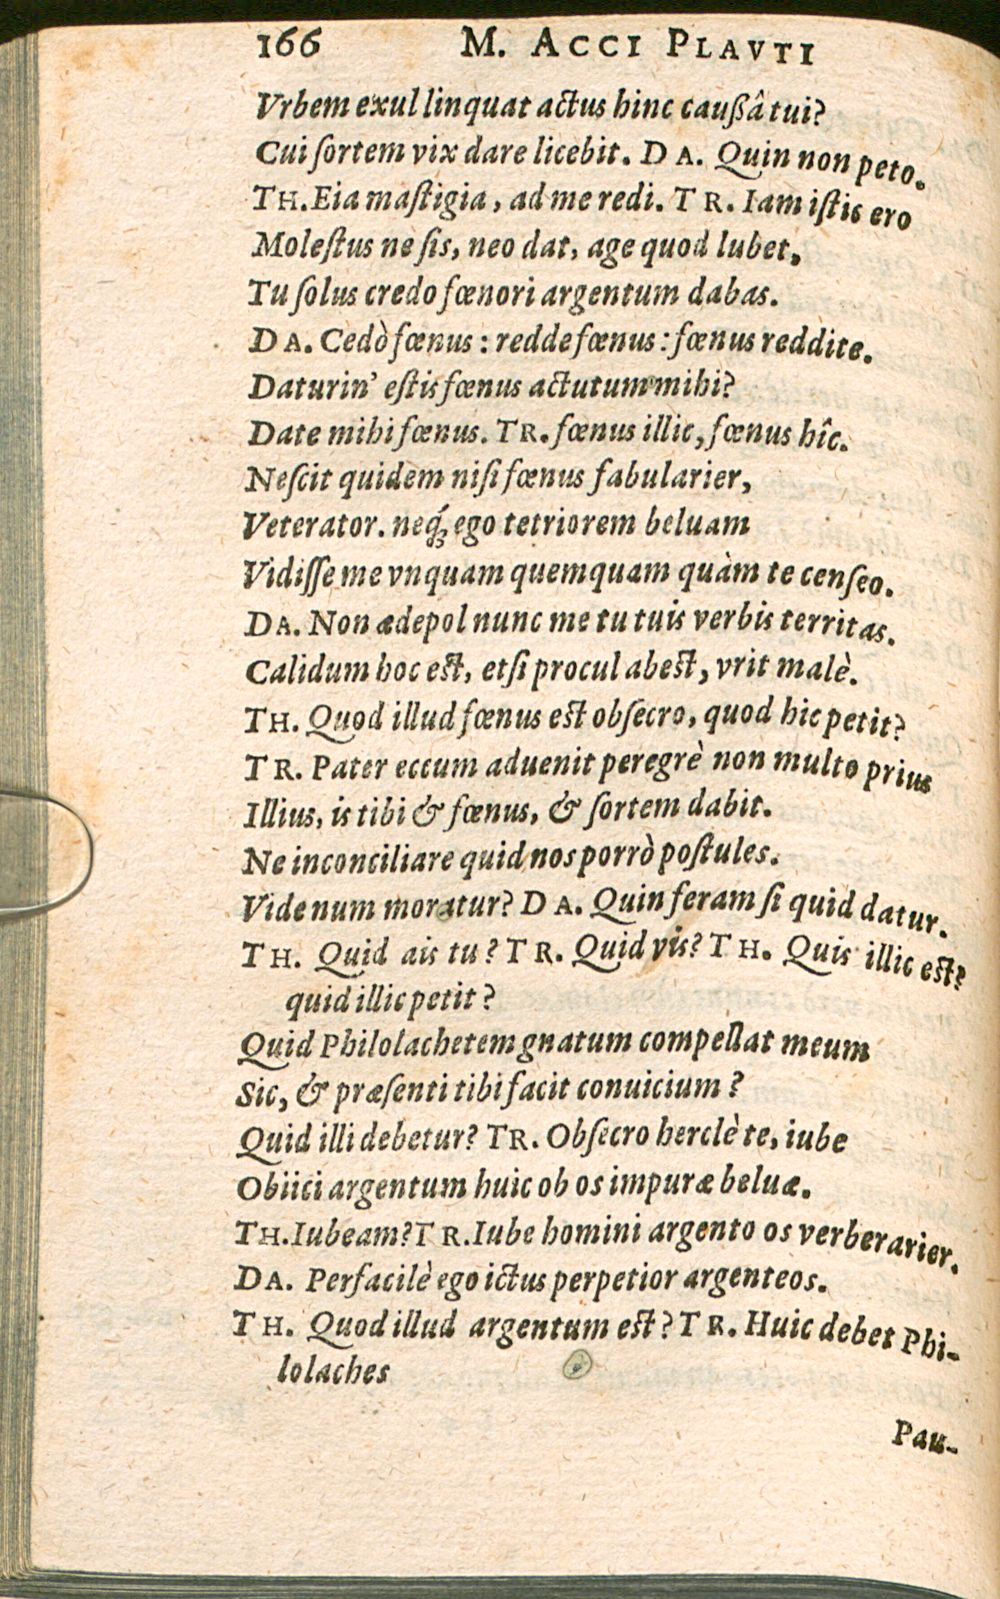 166 M. ACCI PLAVTI
Vrbem exul linquat actus hinc caußâ tui?
Cui ſortem vix dare licebit. DA. Quin non peto.
TH. Eia maſtigia, ad me redi. TR. Iam iſtic ero
Moleſtus ne ſis, neo dat, age quod lubet.
Tu ſolus credo fœnori argentum dabas.
DA. Cedò fœnus: redde fœnus: fœnus reddite.
Daturin' eſtis fœnus actutum mihi?
Date mihi fœnus. TR. fœnus illic, fœnus hîc.
Neſcit quidem niſi fœnus fabularier,
Veterator. neq́ꝫ ego tetriorem beluam
Vidiſſe me vnquam quemquam quàm te cenſeo.
DA. Non ædepol nunc me tu tuis verbis territas.
Calidum hoc eſt, etſi procul abeſt, vrit malè.
TH. Quod illud fœnus eſt obſecro, quod hic petit?
TR. Pater eccum aduenit peregrè non multo prius
Illius, is tibi & fœnus, & ſortem dabit.
Ne inconciliare quid nos porrò poſtules.
Vide num moratur? DA. Quin feram ſi quid datur.
TH. Quid ais tu? TR. Quid vis? TH. Quis illic eſt?
quid illic petit?
Quid Philolachetem gnatum compellat meum
Sic, & præſenti tibi facit conuicium?
Quid illi debetur? TR. Obſecro herclè te, iube
Obiici argentum huic ob os impuræ beluæ.
TH. Iubeam? TR. Iube homini argento os verberarier.
DA. Perfacilè ego ictus perpetior argenteos.
TH. Quod illud argentum eſt? TR. Huic debet Phi-
lolaches
Pau-